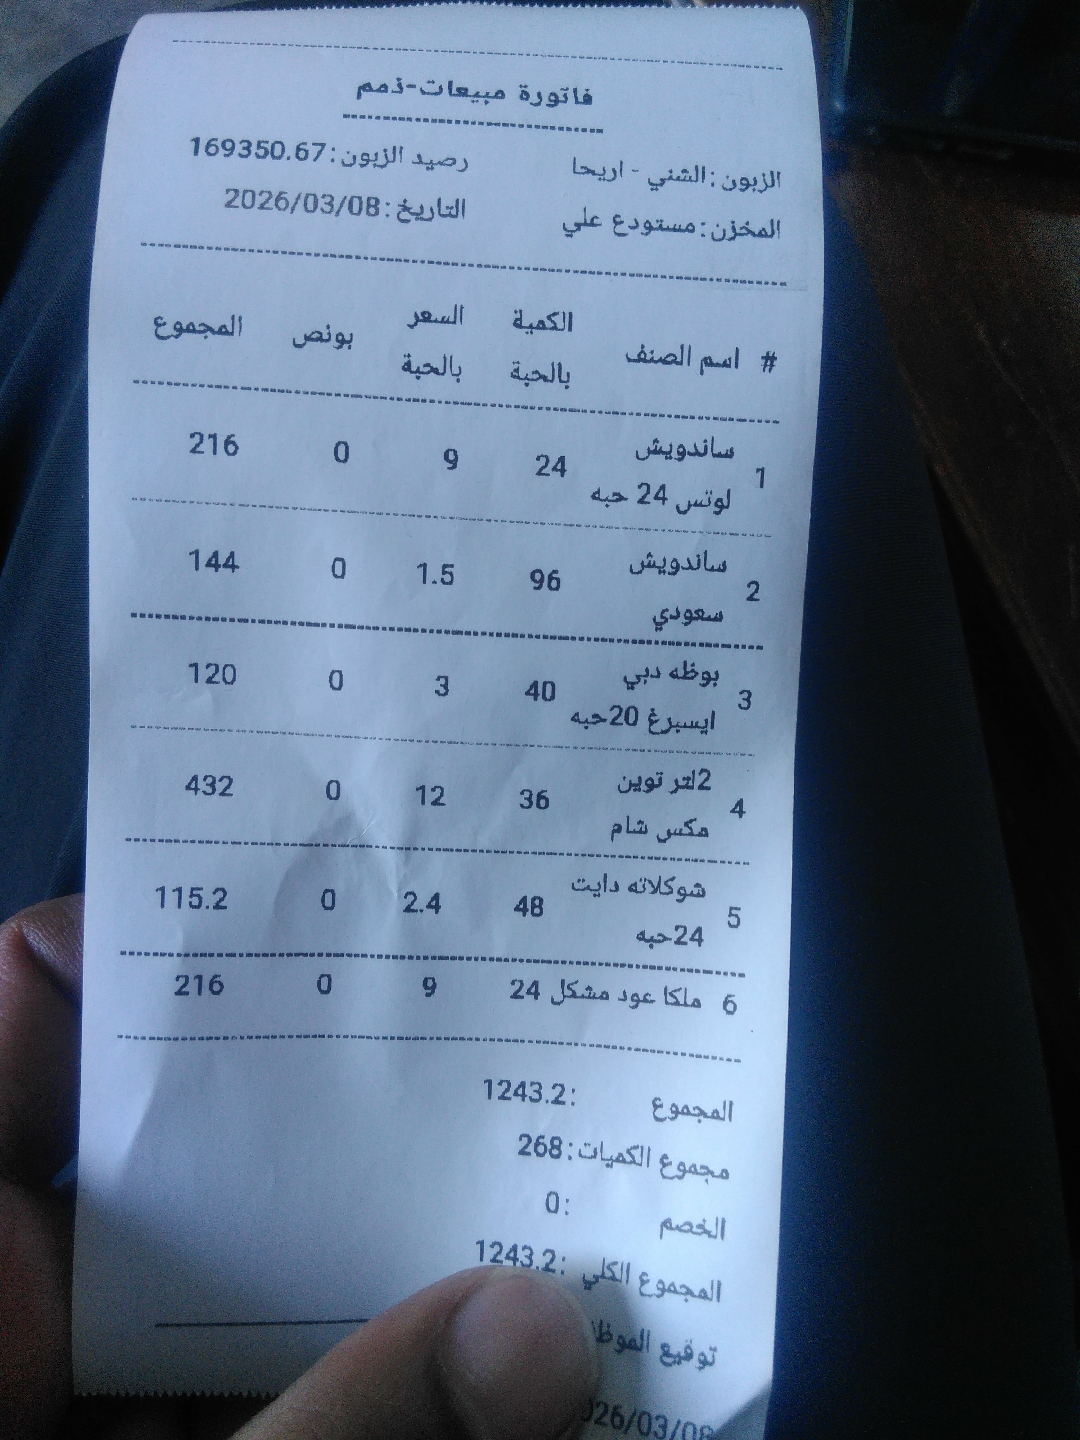 فاتورة مبيعات-ذمم
الزبون:الشني - اريحا رصيد الزبون:169350.67
المخزن:مستودع علي التاريخ:2026/03/08
# اسم الصنف الكمية بالحبة السعر بالحبة بونص المجموع
1 ساندويش لوتس 24 حبه 24 9 0 216
2 ساندويش سعودي 96 1.5 0 144
3 بوظه دبي ايسبرغ 20حبه 40 3 0 120
4 2لتر توين مكس شام 36 12 0 432
5 شوكلاته دايت 24حبه 48 2.4 0 115.2
6 ملكا عود مشكل 24 9 0 216
المجموع :1243.2
مجموع الكميات:268
الخصم :0
المجموع الكلي :1243.2
توقيع